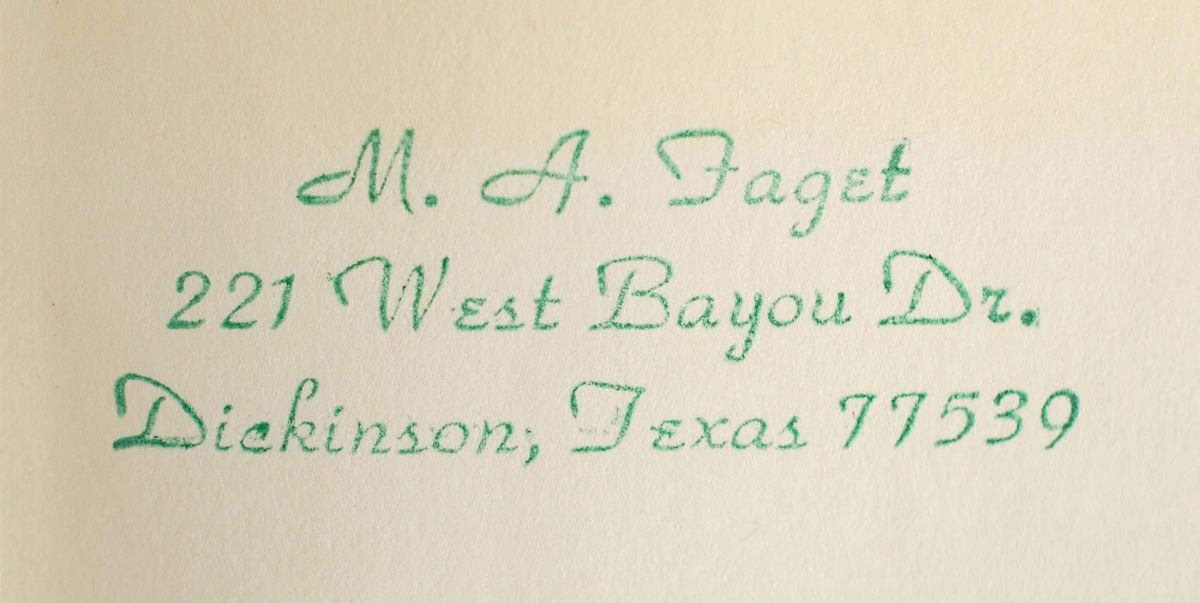 M. A. Faget
221 West Bayou Dr.
Dickinson, Texas 77539